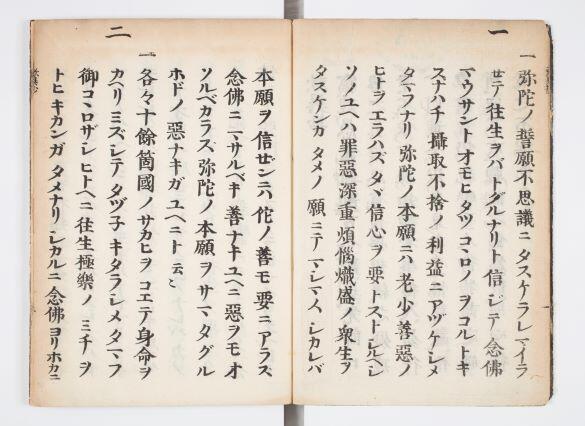 一
一 弥陀ノ誓願不思議ニタスケラレマイラ
セテ往生ヲバトグルナリト信ジテ念佛
マウサントオモヒタツコヽロノヲコルトキ
スナハチ攝取不捨ノ利益ニアヅケシメ
タマフナリ弥陀ノ本願ニハ老少善惡ノ
ヒトヲエラハズタヾ信心ヲ要トストシルヘシ
ソノユヘハ罪惡深重煩惱熾盛ノ衆生ヲ
タスケンカタメノ願ニテマシマスシカレバ
本願ヲ信ゼンニハ佗ノ善モ要ニアラス
念佛ニマサルベキ善ナキユヘニ惡ヲモオ
ソルベカラス弥陀ノ本願ヲサマタグル
ホドノ惡ナキガユヘニト云々
二
一 各々十餘箇國ノサカヒヲコエテ身命ヲ
カヘリミズシテタヅ子キタラシメタマフ
御コヽロザシヒトヘニ往生極樂ノミチヲ
トヒキカンガタメナリシカルニ念佛ヨリホカニ